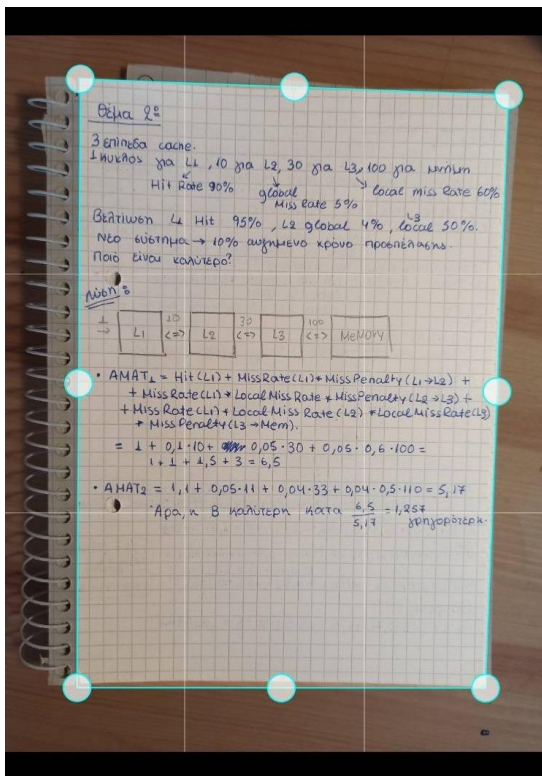 Θέμα 2ο
3 επίπεδα cache.
1 κύκλος για L1, 10 για L2, 30 για L3, 100 για μνήμη
Hit Rate 90%
global Miss Rate 5%
local miss Rate 60%
Βελτίωση L1 Hit 95%, L2 global 4%, L3 local 50%.
Νεο σύστημα → 10% αυξημενο χρόνο προσπέλασης.
Ποιό είναι καλύτερο?
Λύση:
1 → L1 10 <=> L2 30 <=> L3 100 <=> MeMory
• AMAT1 = Hit(L1) + MissRate(L1)*MissPenalty(L1→L2) +
+ MissRate(L1)*LocalMissRate*MissPenalty(L2→L3)+
+ MissRate(L1)*LocalMissRate(L2)*LocalMissRate(L3)
* MissPenalty(L3→Mem).
= 1 + 0,1·10 + 0,05·30 + 0,05·0,6·100 =
1 + 1 + 1,5 + 3 = 6,5
• AMAT2 = 1,1 + 0,05·11 + 0,04·33 + 0,04·0,5·110 = 5,17
Άρα, η B καλύτερη κατα 6,5/5,17 = 1,257 γρηγορότερη.